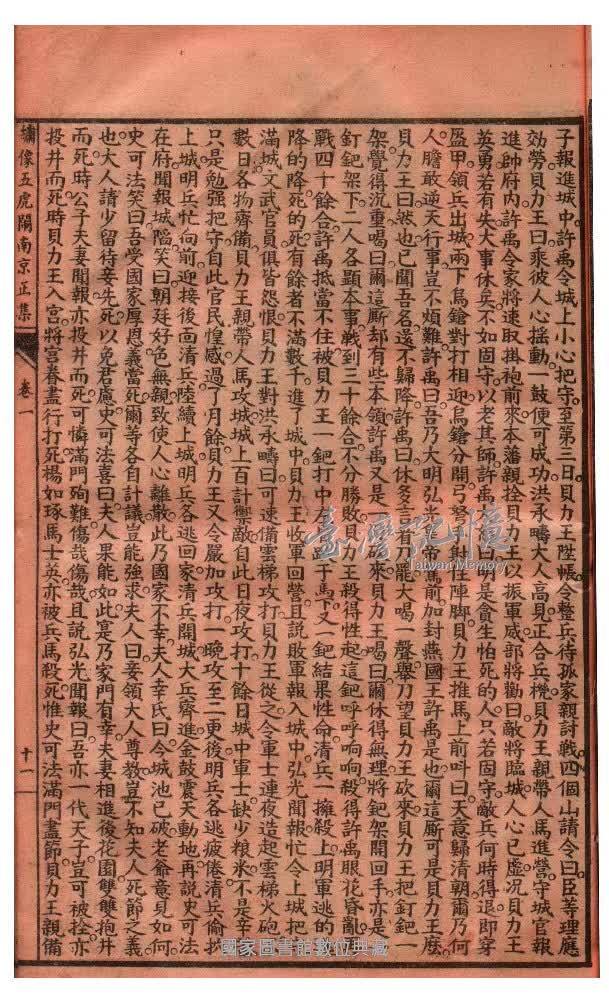 子報進城中許禹令城上小心把守至第三日貝力王陞帳令整兵待孤家親討戰四個山請令曰臣等理應
効勞貝力王曰乘彼人心搖動一鼓便可成功洪永疇大人高見正合兵機貝力王親帶人馬進營守城官報
進帥府內許禹令家將速取掛袍前來本藩親拴貝力王以振軍威部將勸曰敵將臨城人心已虛况貝力王
英勇若有失大事休矣不如固守以老其師許禹曰明是貪生怕死的人只若固守敵兵何時得退即穿
盔甲領兵出城兩下鳥鎗對打相迎鳥鎗分開弓弩射住陣脚貝力王推馬上前呌曰天意歸清朝爾乃何
人膽敢逆天行事豈不煩難許禹曰吾乃大明弘光帝駕前加封燕國王許禹是也爾這厮可是貝力王麽
貝力王曰然也已聞吾名還不歸降許禹曰休多言看刀罷大喝一聲舉刀望貝力王砍來貝力王把釘鈀一
架覺得沉重喝曰爾這厮却有些本領許禹又是一砍來貝力王喝曰爾休得無理將鈀架開回手亦是一
釘鈀架下二人各顯本事戰到三十餘合不分勝敗貝力王殺得性起這鈀呼呼响响殺得許禹眼花昏亂
戰四十餘合許禹抵當不住被貝力王一鈀打中在于馬下又一鈀結果性命清兵一擁殺上明軍逃的
降的降死的死有餘者不滿數千進了城中貝力王收軍回營且說敗軍報入城中弘光聞報忙令上城把
滿城文武官員俱皆怨恨貝力王對洪永疇曰可速備雲梯攻打貝力王從之令軍士連夜造起雲梯火砲
數日各物齊備貝力王親帶人馬攻城城上百計禦敵自此日夜攻打十餘日城中軍士缺少粮米不是辛
只是勉强把守自此官民惶感過了月餘貝力王又令嚴加攻打一晚攻至二更後明兵各逃疲倦清兵偷扒
上城明兵忙向前迎接後面清兵陸續上城明兵各逃回家清兵開城大兵齊進金鼓震天動地再說史可法
在府聞報城陷笑曰朝廷好色無親致使人心離散此乃國家不幸夫人辛氏曰今城池已破老爺意見如何
史可法笑曰吾受國家厚恩義當死爾等各自計議豈能强求夫人曰妾領大人尊教豈不知夫人死節之義
也大人請少留待妾先死以免君慮史可法喜曰夫人果能如此寔乃家門有幸夫妻相進後花園雙雙抱井
而死時公子夫妻聞報亦投井而死可憐滿門殉難傷哉傷哉且說弘光聞報曰吾亦一代天子豈可被拴亦
投井而死時貝力王入宮將宮眷盡行打死楊如琢馬士英亦被兵馬殺死惟史可法滿門盡節貝力王親備
繡像五虎鬧南京正集
卷一
十一
臺灣記憶
Taiwan Memory
國家圖書館數位典藏